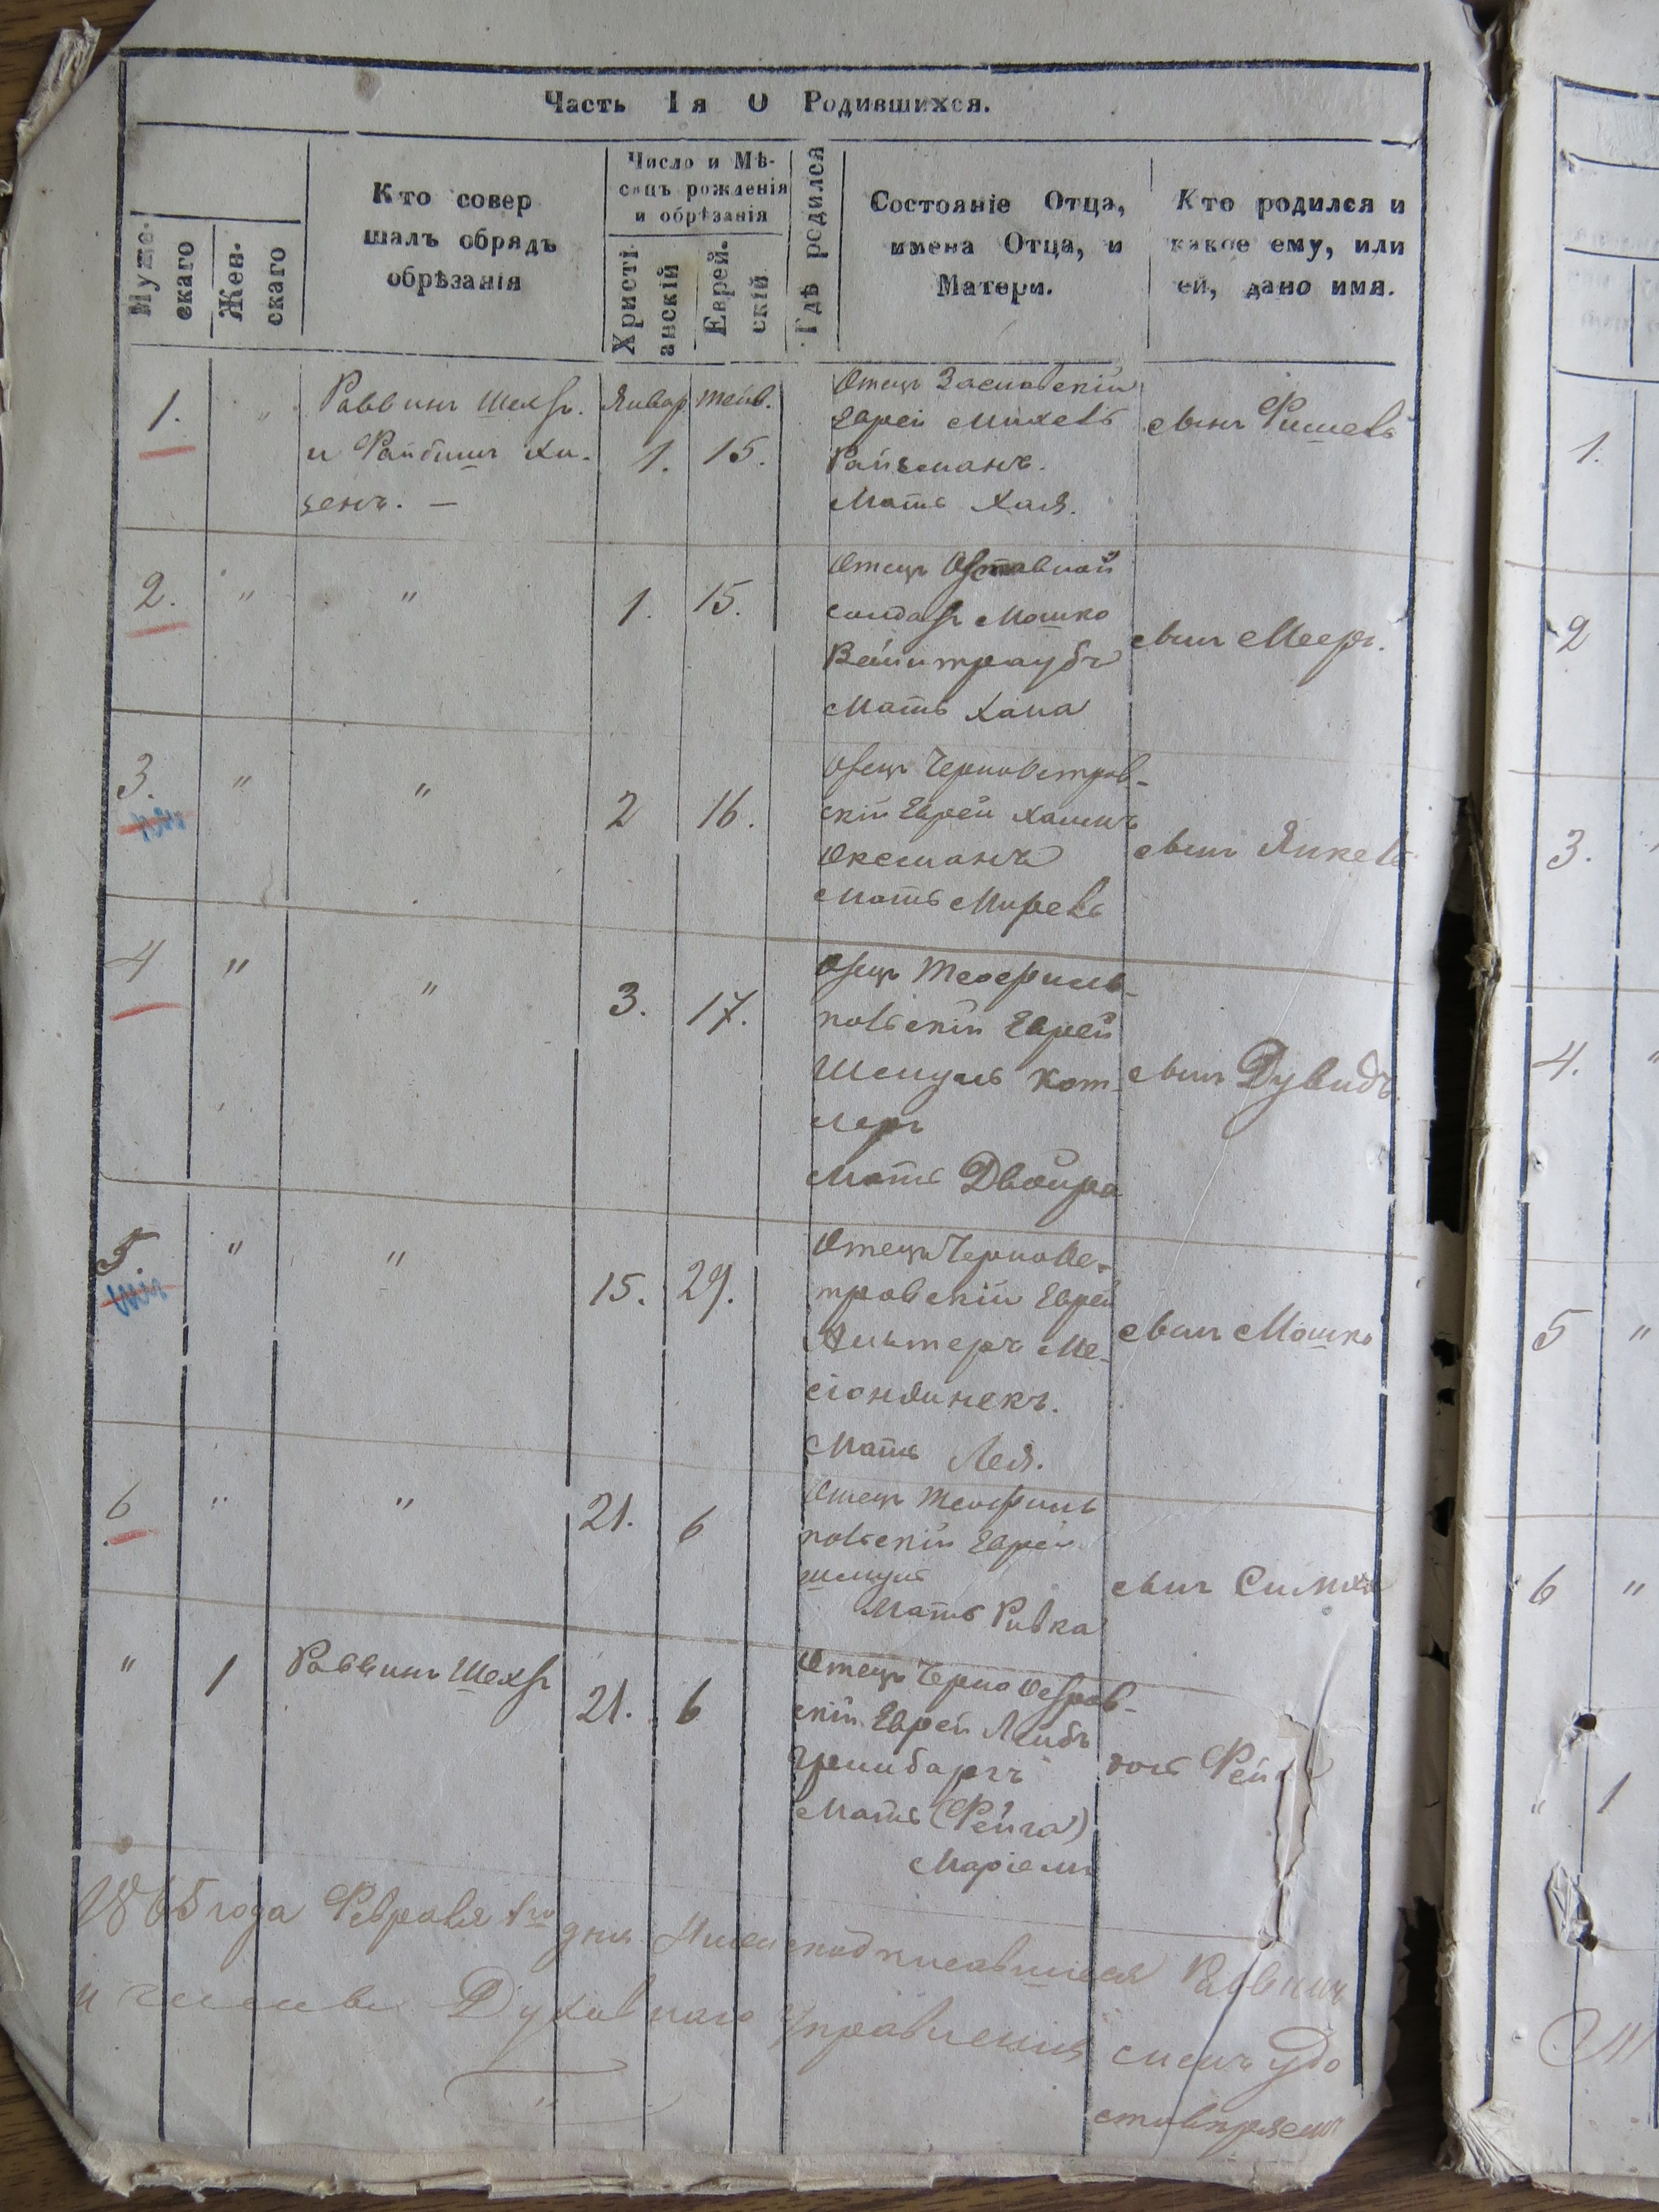 Часть Iя О Родившихся.
Муже-
скаго
Жен-
скаго
Кто совер
шалъ обрядъ
обрѣзанія
Число и Мѣ-
сяцъ рожденія
и обрѣзанія
Христі-
анскій
Еврей-
скій
Гдѣ родился
Состояніе Отца,
имена Отца, и
Матери.
Кто родился и
какое ему, или
ей, дано имя.
1. " Раввинъ Шехт.
и Файбишъ Хи-
Январ Тейв.
1. 15.
Отецъ
Еврей Михель
Мать Хая.
сынъ Фишель
2. " " 1. 15.
Отецъ Отставной
солдатъ Мошко
Вайнтраубъ
Мать Хана
сынъ Мееръ.
3. " " 2 16.
Отецъ Черноостров-
скій Еврей Хаимъ
Оксманъ
Мать Мирель
сынъ Янкель
4 " " 3. 17.
Отецъ Теофиль-
польскій Еврей
Шмуль Кот-
леръ
Мать Двойра
сынъ Дувидъ.
5. " " 15. 29.
Отецъ Черноос-
тровскій Еврей
Альтеръ
Мать Лея.
сынъ Мошко
6 " " 21. 6
Отецъ Теофиль
польскій Еврей
Шмуль
Мать Ривка
сынъ Симха
" 1 Раввинъ Шехт 21. 6
Отецъ Черноостров-
скій Еврей Лейбъ
Гринбаргъ
Мать (Фейга)
Маріемъ
дочь Фей
1865 года Февраля 1го дня Мы подписавшіеся Раввинъ
и члены Духовнаго Правленія симъ удо
стовѣряемъ
1.
2
3.
4. "
5 "
6 "
" 1